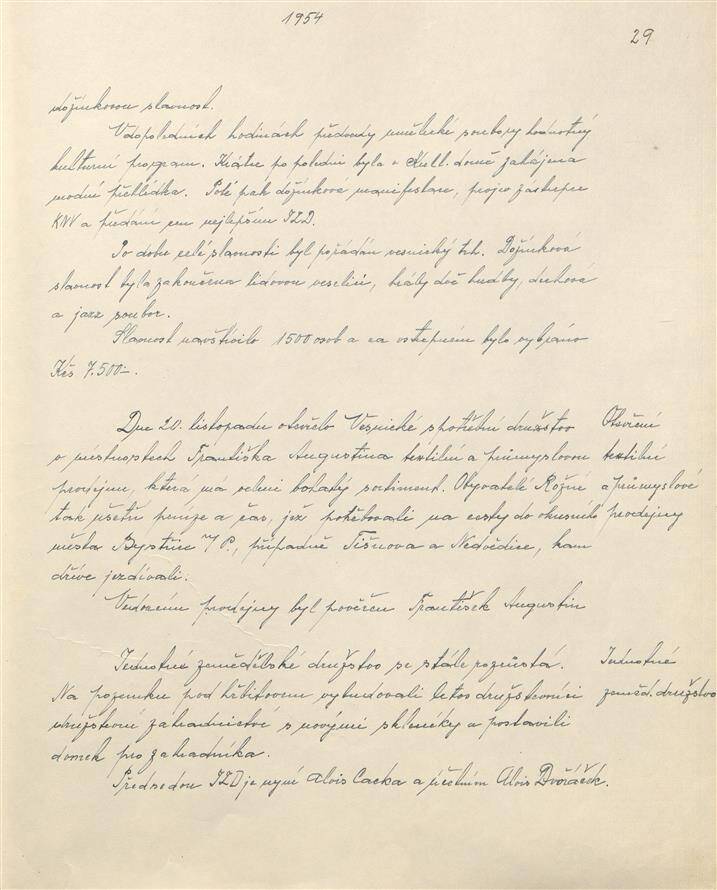 1954
29
dožínkovou slavnost.
V dopoledních hodinách předvedly umělecké soubory hodnotný
kulturní program. Krátce po poledni byla v Kult. domě zahájena
modní přehlídka. Poté pak dožínková manifestace, projev zástupce
KNV a předání cen nejlepším JZD.
Po dobu celé slavnosti byl pořádán vesnický trh. Dožínková
slavnost byla zakončena lidovou veselicí, hrály dvě hudby, dechová
a jazz soubor.
Slavnost navštívilo 1500 osob a na vstupném bylo vybráno
Kčs 7.500-.
Dne 20. listopadu otevřelo Vesnické spotřební družstvo
v místnostech Františka Augustina textilní a průmyslovou
prodejnu, která má velmi bohatý sortiment. Obyvatelé Rožné
tak ušetří peníze a čas, jež potřebovali na cesty do okresního
města Bystřice n/P., případně Tišnova a Nedvědice, kam
dříve jezdívali.
Vedoucím prodejny byl pověřen František Augustin
Otevření
textilní
a průmyslové
prodejny
Jednotné zemědělské družstvo se stále rozrůstá.
Na pozemku pod hřbitovem vybudovali letos družstevníci
družstevní zahradnictví s novými skleníky a postavili
domek pro zahradníka.
Předsedou JZD je nyní Alois Cacka a účetním Alois Dvořáček.
Jednotné
zeměd. družstvo